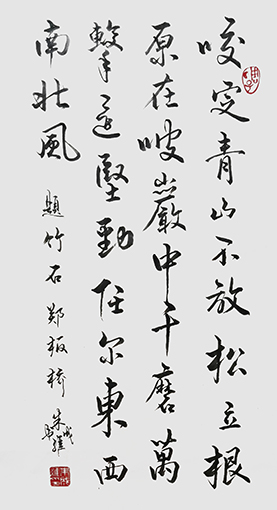 咬定青山不放松立根
原在破巖中千磨萬
擊還堅勁任尔東西
南北風 題竹石 郑板桥